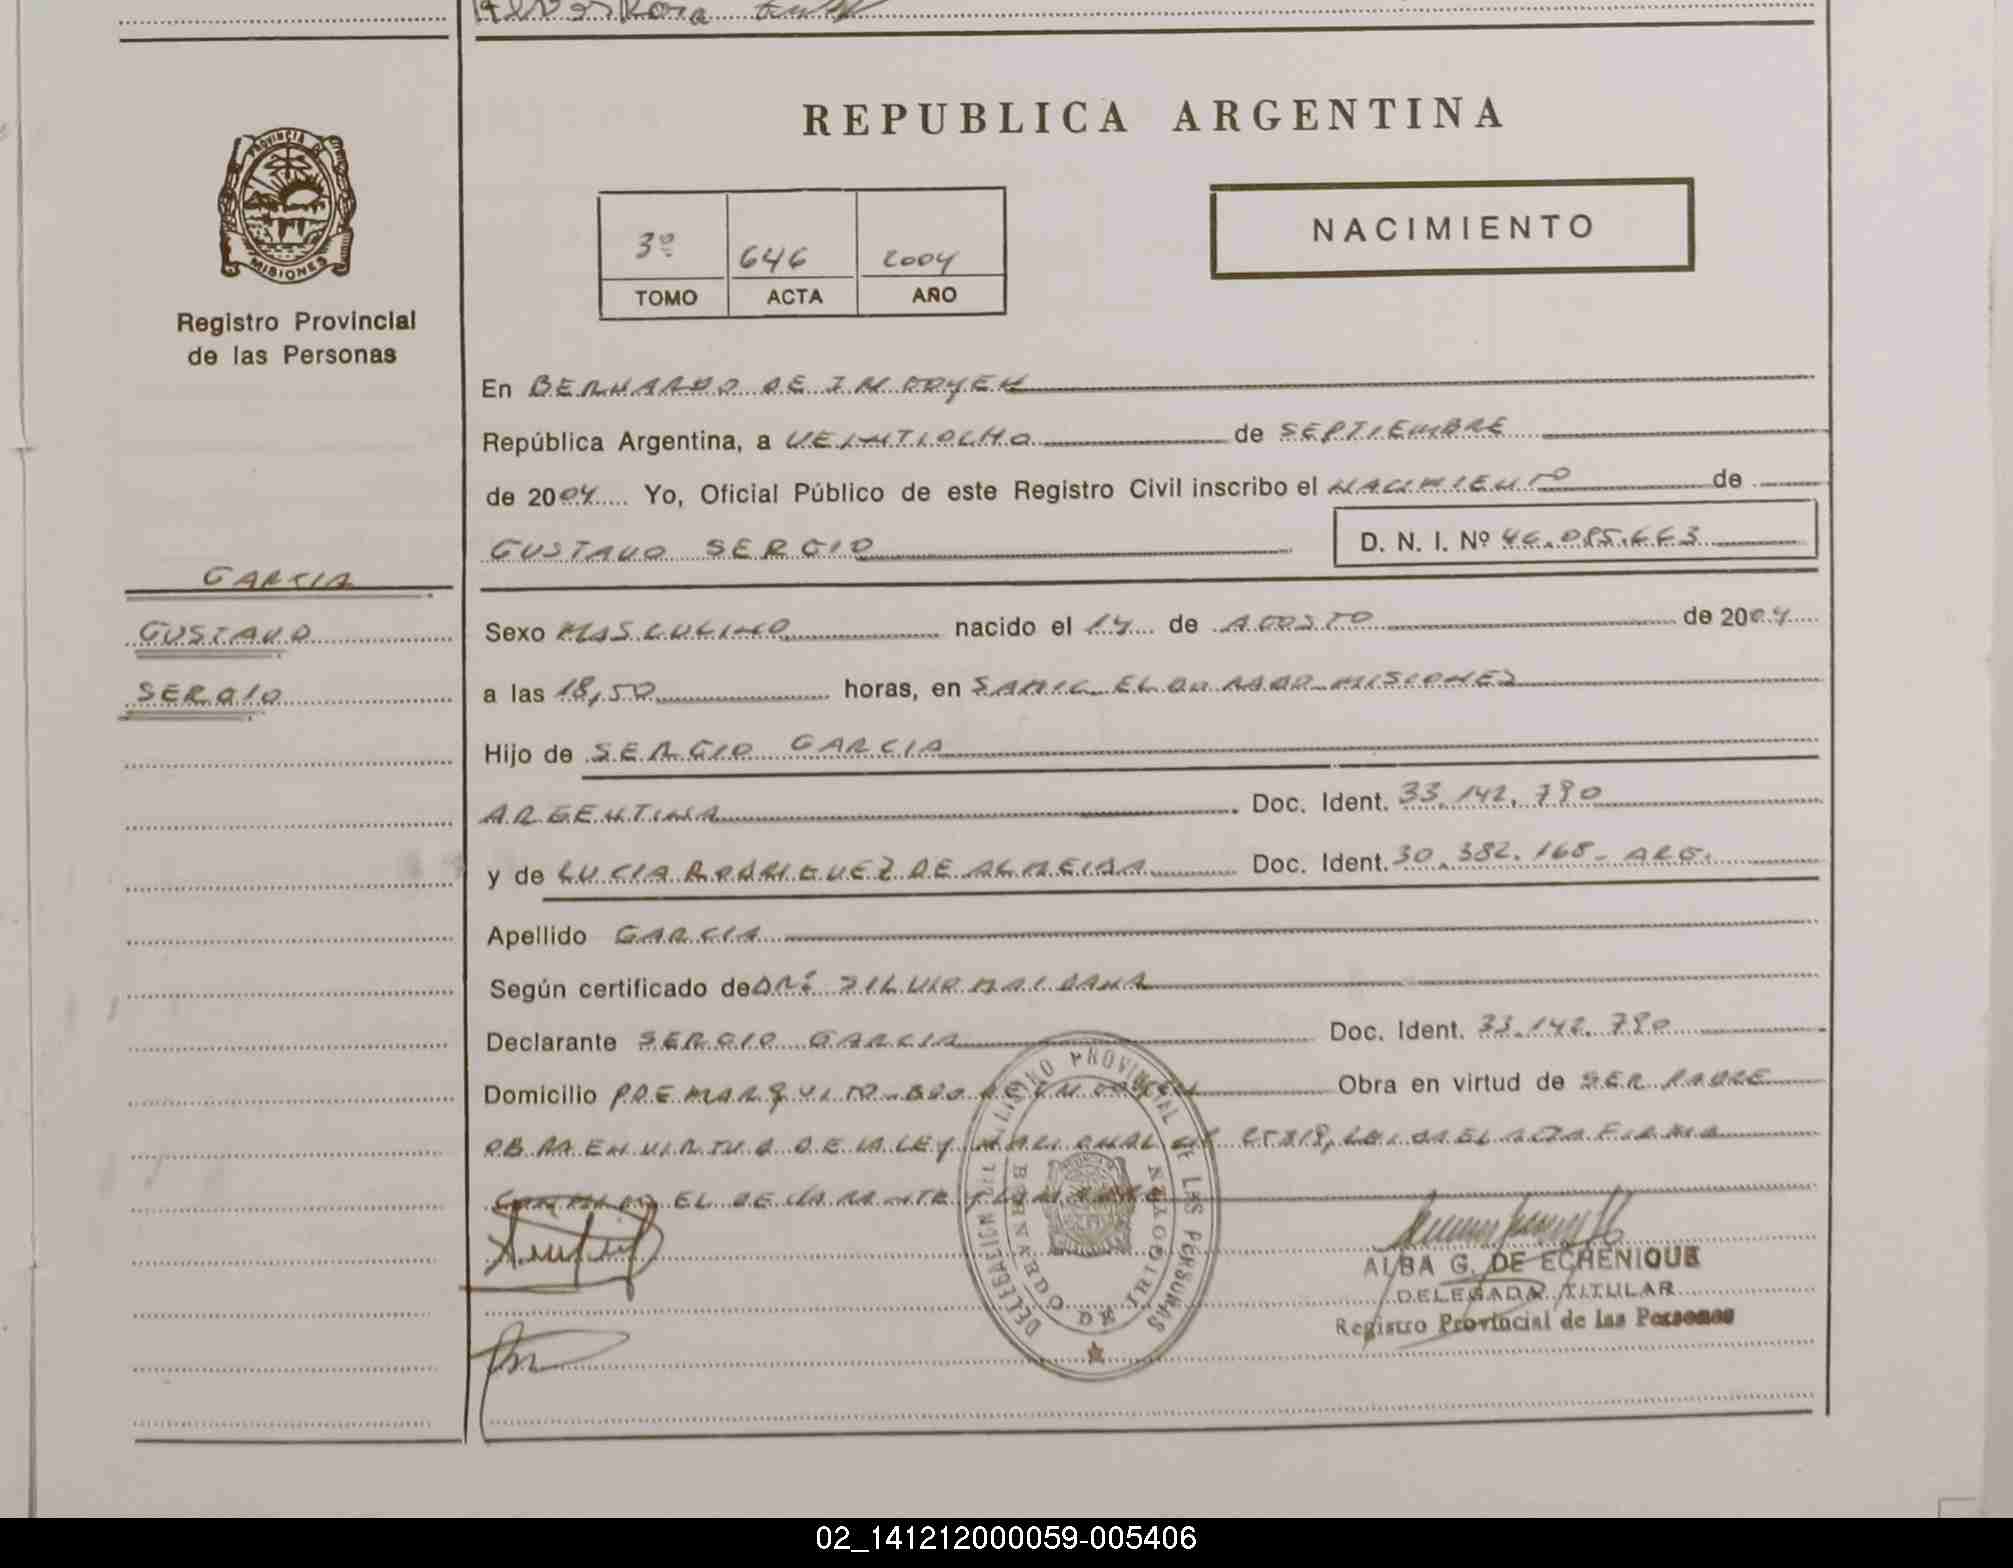 REPUBLICA ARGENTINA
PROVINCIA DE
MISIONES
Registro Provincial
de las Personas
NACIMIENTO
3º 646 2004
TOMO ACTA AÑO
En BERNARDO DE IRIGOYEN
República Argentina, a VEINTIOCHO de SEPTIEMBRE
de 2004 Yo, Oficial Público de este Registro Civil inscribo el NACIMIENTO de
GUSTAVO SERGIO D. N. I. Nº 46.085.663
GARCIA
GUSTAVO
SERGIO
Sexo MASCULINO nacido el 14 de AGOSTO de 2004
a las 18,50 horas, en SAMIC ELDORADO MISIONES
Hijo de SERGIO GARCIA
ARGENTINA Doc. Ident. 33.142.790
y de LUCIA RODRIGUEZ DE ALMEIDA Doc. Ident. 30.382.168- ARG.
Apellido GARCIA
Según certificado de DRº SILVIO MAIDANA
Declarante SERGIO GARCIA Doc. Ident. 33.142.790
Domicilio PJE MARQUITO-BDO DE IRIGOYEN Obra en virtud de SER PADRE
OBRA EN VIRTUD DE LA LEY NACIONAL Nº LEIDA EL ACTA FIRMA
CONMIGO EL DECLARANTE
DELEGACION DEL REGISTRO PROVINCIAL DE LAS PERSONAS
BERNARDO DE IRIGOYEN
ALBA G. DE ECHENIQUE
DELEGADA TITULAR
Registro Provincial de las Personas
02_141212000059-005406